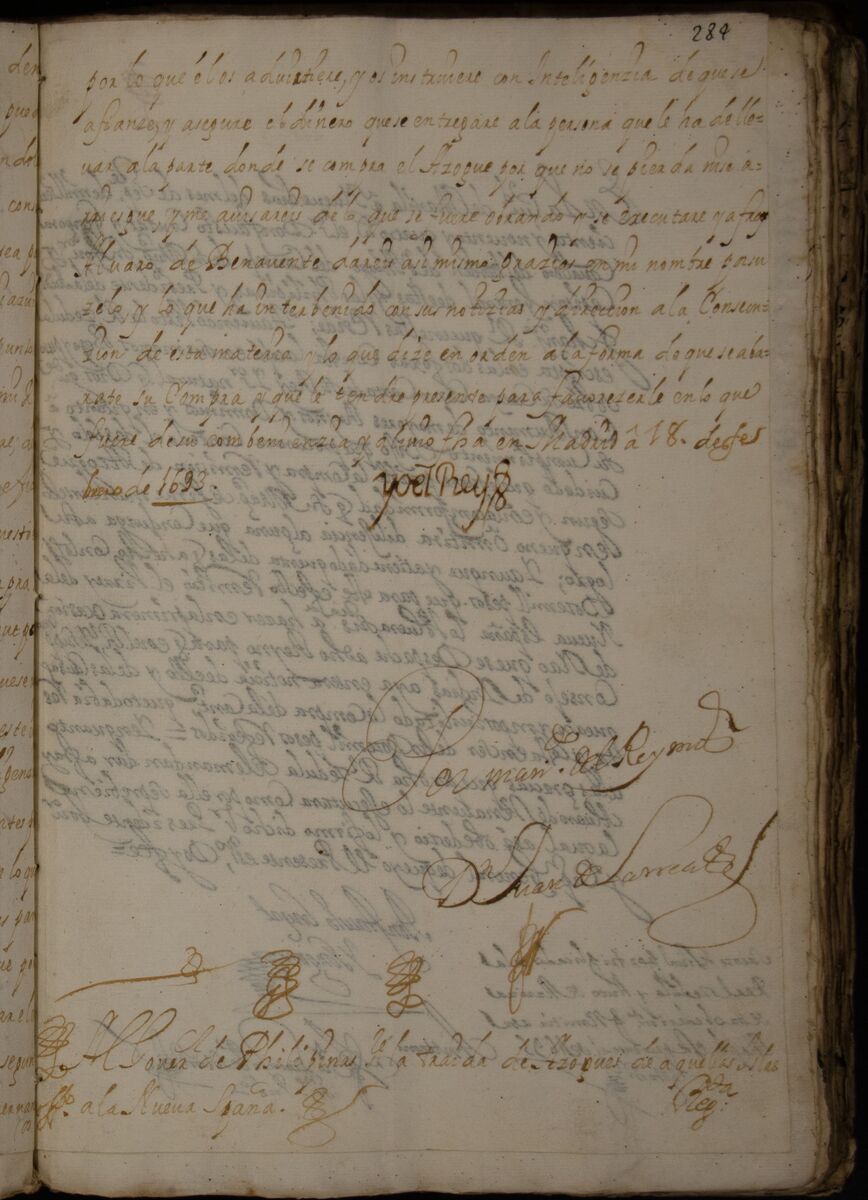 284
por lo que él os aduirtiere, y os instruiere con Inteligenzia de que se
afianze, y asegure el dinero que se entregare a la persona que le ha de lle-
uar a la parte donde se compra el Azogue por que no se pierda ni se a-
rriesgue y me auisareis de lo que se fuere obrando y se executare y a fray
Aluaro de Benauente dareis asi mismo grazias en mi nombre por su
zelo, y lo que ha interbenido con sus notizias y direccion a la Consecu-
zion de esta materia y lo que dize en orden a la forma de que se aba-
rate su Compra y que le tendre presente para fauorezerle en lo que
fuere de su combenienzia y aliuio fha en Madrid â 18. de fe
brero de 1693.
yo el Rey
Por man.do del Rey nro s.r
Dn Juan de Larrea
Al Gouer.or de Philipinas sre la traida de Azogues de aquellas Islas
a la Nueua Spaña.
Reg.da